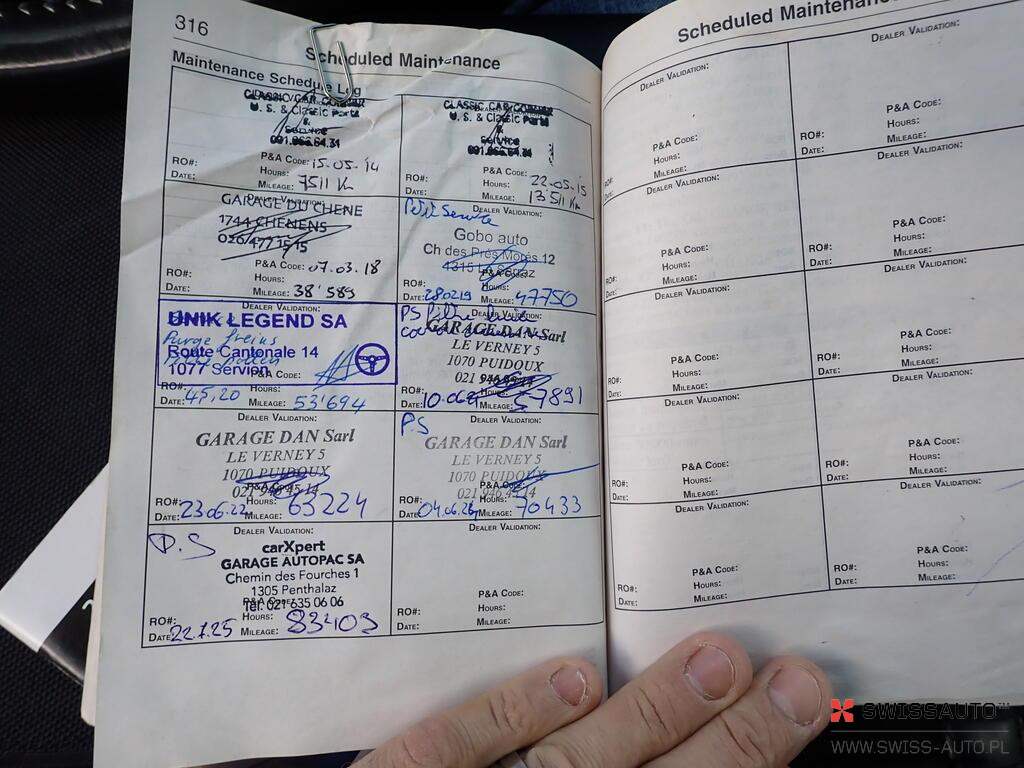 316
Scheduled Maintenance
Maintenance Schedule Log
CLASSIC CAR CORNER
U. S. & Classic Parts
&
Service
091.966.64.31
RO#:
P&A CODE:
15.05.14
HOURS:
DATE:
MILEAGE: 7511 Km
CLASSIC CAR CORNER
U. S. & Classic Parts
&
Service
RO#:
P&A CODE:
HOURS: 22.05.15
DATE:
MILEAGE: 13'511 Km
DEALER VALIDATION:
GARAGE DU CHENE
1744 CHENENS
026/477 15 15
P&A CODE: 07.03.18
RO#:
HOURS:
DATE:
MILEAGE: 38'589
Petit Service
DEALER VALIDATION:
Gobo auto
Ch des Prés Morés 12
1315 La Sarraz
P&A CODE:
RO#:
HOURS:
DATE: 280219
MILEAGE: 47750
DEALER VALIDATION:
UNIK LEGEND SA
Purge freins
Route Cantonale 14
1077 Servion
P&A CODE:
RO#:
HOURS:
DATE:
MILEAGE: 53'694
PS
DEALER VALIDATION:
GARAGE DAN Sarl
LE VERNEY 5
1070 PUIDOUX
021 946 45 14
RO#:
HOURS:
DATE:
MILEAGE: 57891
DEALER VALIDATION:
GARAGE DAN Sarl
LE VERNEY 5
1070 PUIDOUX
021 946 45 14
P&A CODE:
RO#:
HOURS:
DATE: 23.06.22
MILEAGE: 63224
PS
DEALER VALIDATION:
GARAGE DAN Sarl
LE VERNEY 5
1070 PUIDOUX
021 946 45 14
P&A CODE:
RO#:
HOURS:
DATE:
MILEAGE: 70433
P.S
DEALER VALIDATION:
carXpert
GARAGE AUTOPAC SA
Chemin des Fourches 1
1305 Penthalaz
P&A CODE:
Tél. 021 635 06 06
RO#:
HOURS:
DATE: 22.7.25
MILEAGE: 83403
DEALER VALIDATION:
P&A CODE:
RO#:
HOURS:
DATE:
MILEAGE:
Scheduled Maintenance
DEALER VALIDATION:
P&A CODE:
RO#:
HOURS:
DATE:
MILEAGE:
DEALER VALIDATION:
P&A CODE:
RO#:
HOURS:
DATE:
MILEAGE:
DEALER VALIDATION:
P&A CODE:
RO#:
HOURS:
DATE:
MILEAGE:
DEALER VALIDATION:
P&A CODE:
RO#:
HOURS:
DATE:
MILEAGE:
DEALER VALIDATION:
P&A CODE:
RO#:
HOURS:
DATE:
MILEAGE:
DEALER VALIDATION:
P&A CODE:
RO#:
HOURS:
DATE:
MILEAGE:
DEALER VALIDATION:
P&A CODE:
RO#:
HOURS:
DATE:
MILEAGE:
DEALER VALIDATION:
P&A CODE:
RO#:
HOURS:
DATE:
MILEAGE:
DEALER VALIDATION:
P&A CODE:
RO#:
HOURS:
DATE:
MILEAGE:
DEALER VALIDATION:
P&A CODE:
RO#:
HOURS:
DATE:
MILEAGE:
SWISSAUTO
WWW.SWISS-AUTO.PL